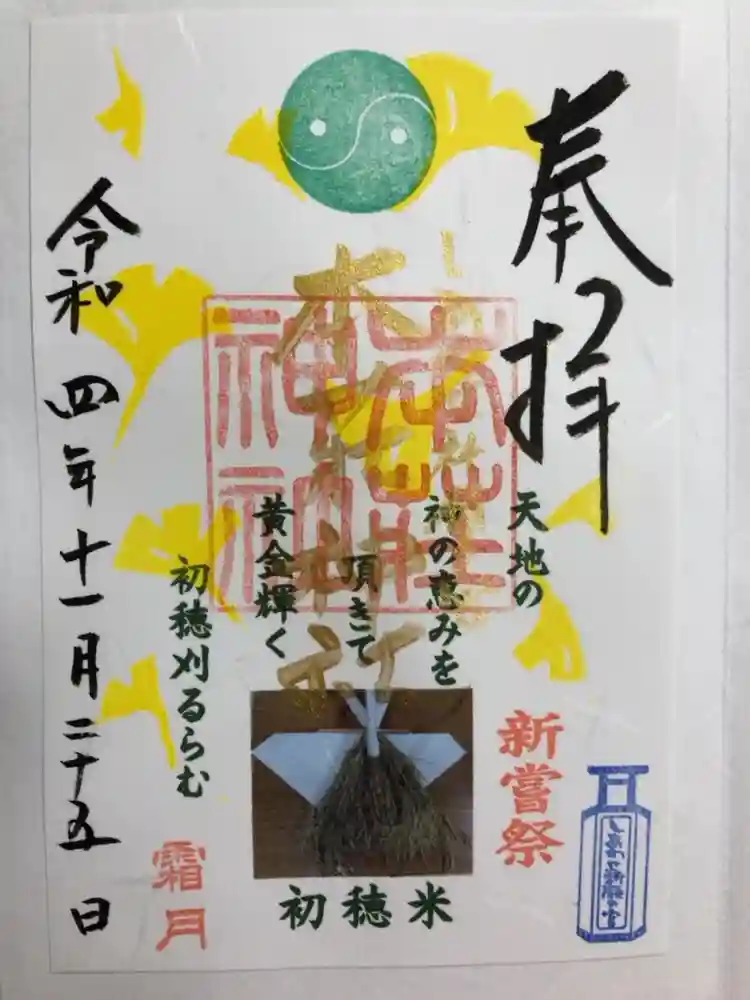 奉拝
天地の
神の恵みを
頂きて
黄金輝く
初穂刈るらむ
新嘗祭
初穂米
霜月
令和四年十一月二十五日